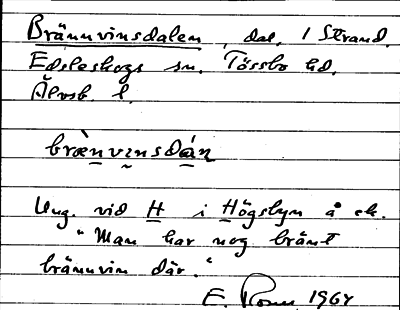 Brännvinsdalen, dal, i Strand,
Edsleskogs sn. Tössbo hd.
Älvsb. l.
brænvinsdán
Ung. vid H i Högsbyn å ek.
"Man har nog bränt
brännvin där."
E. 1964